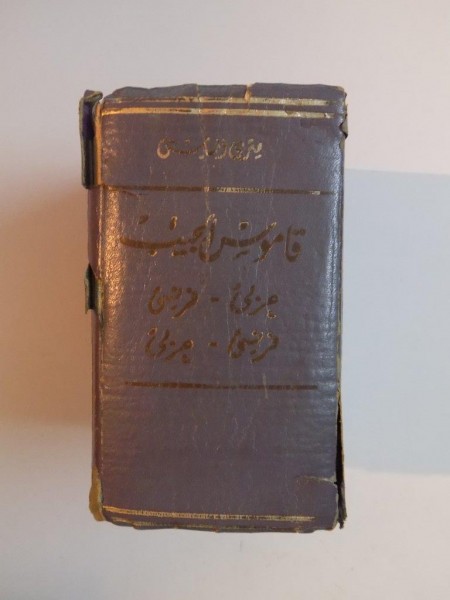 قاموس الجيب
عربي - فرنسي
فرنسي - عربي